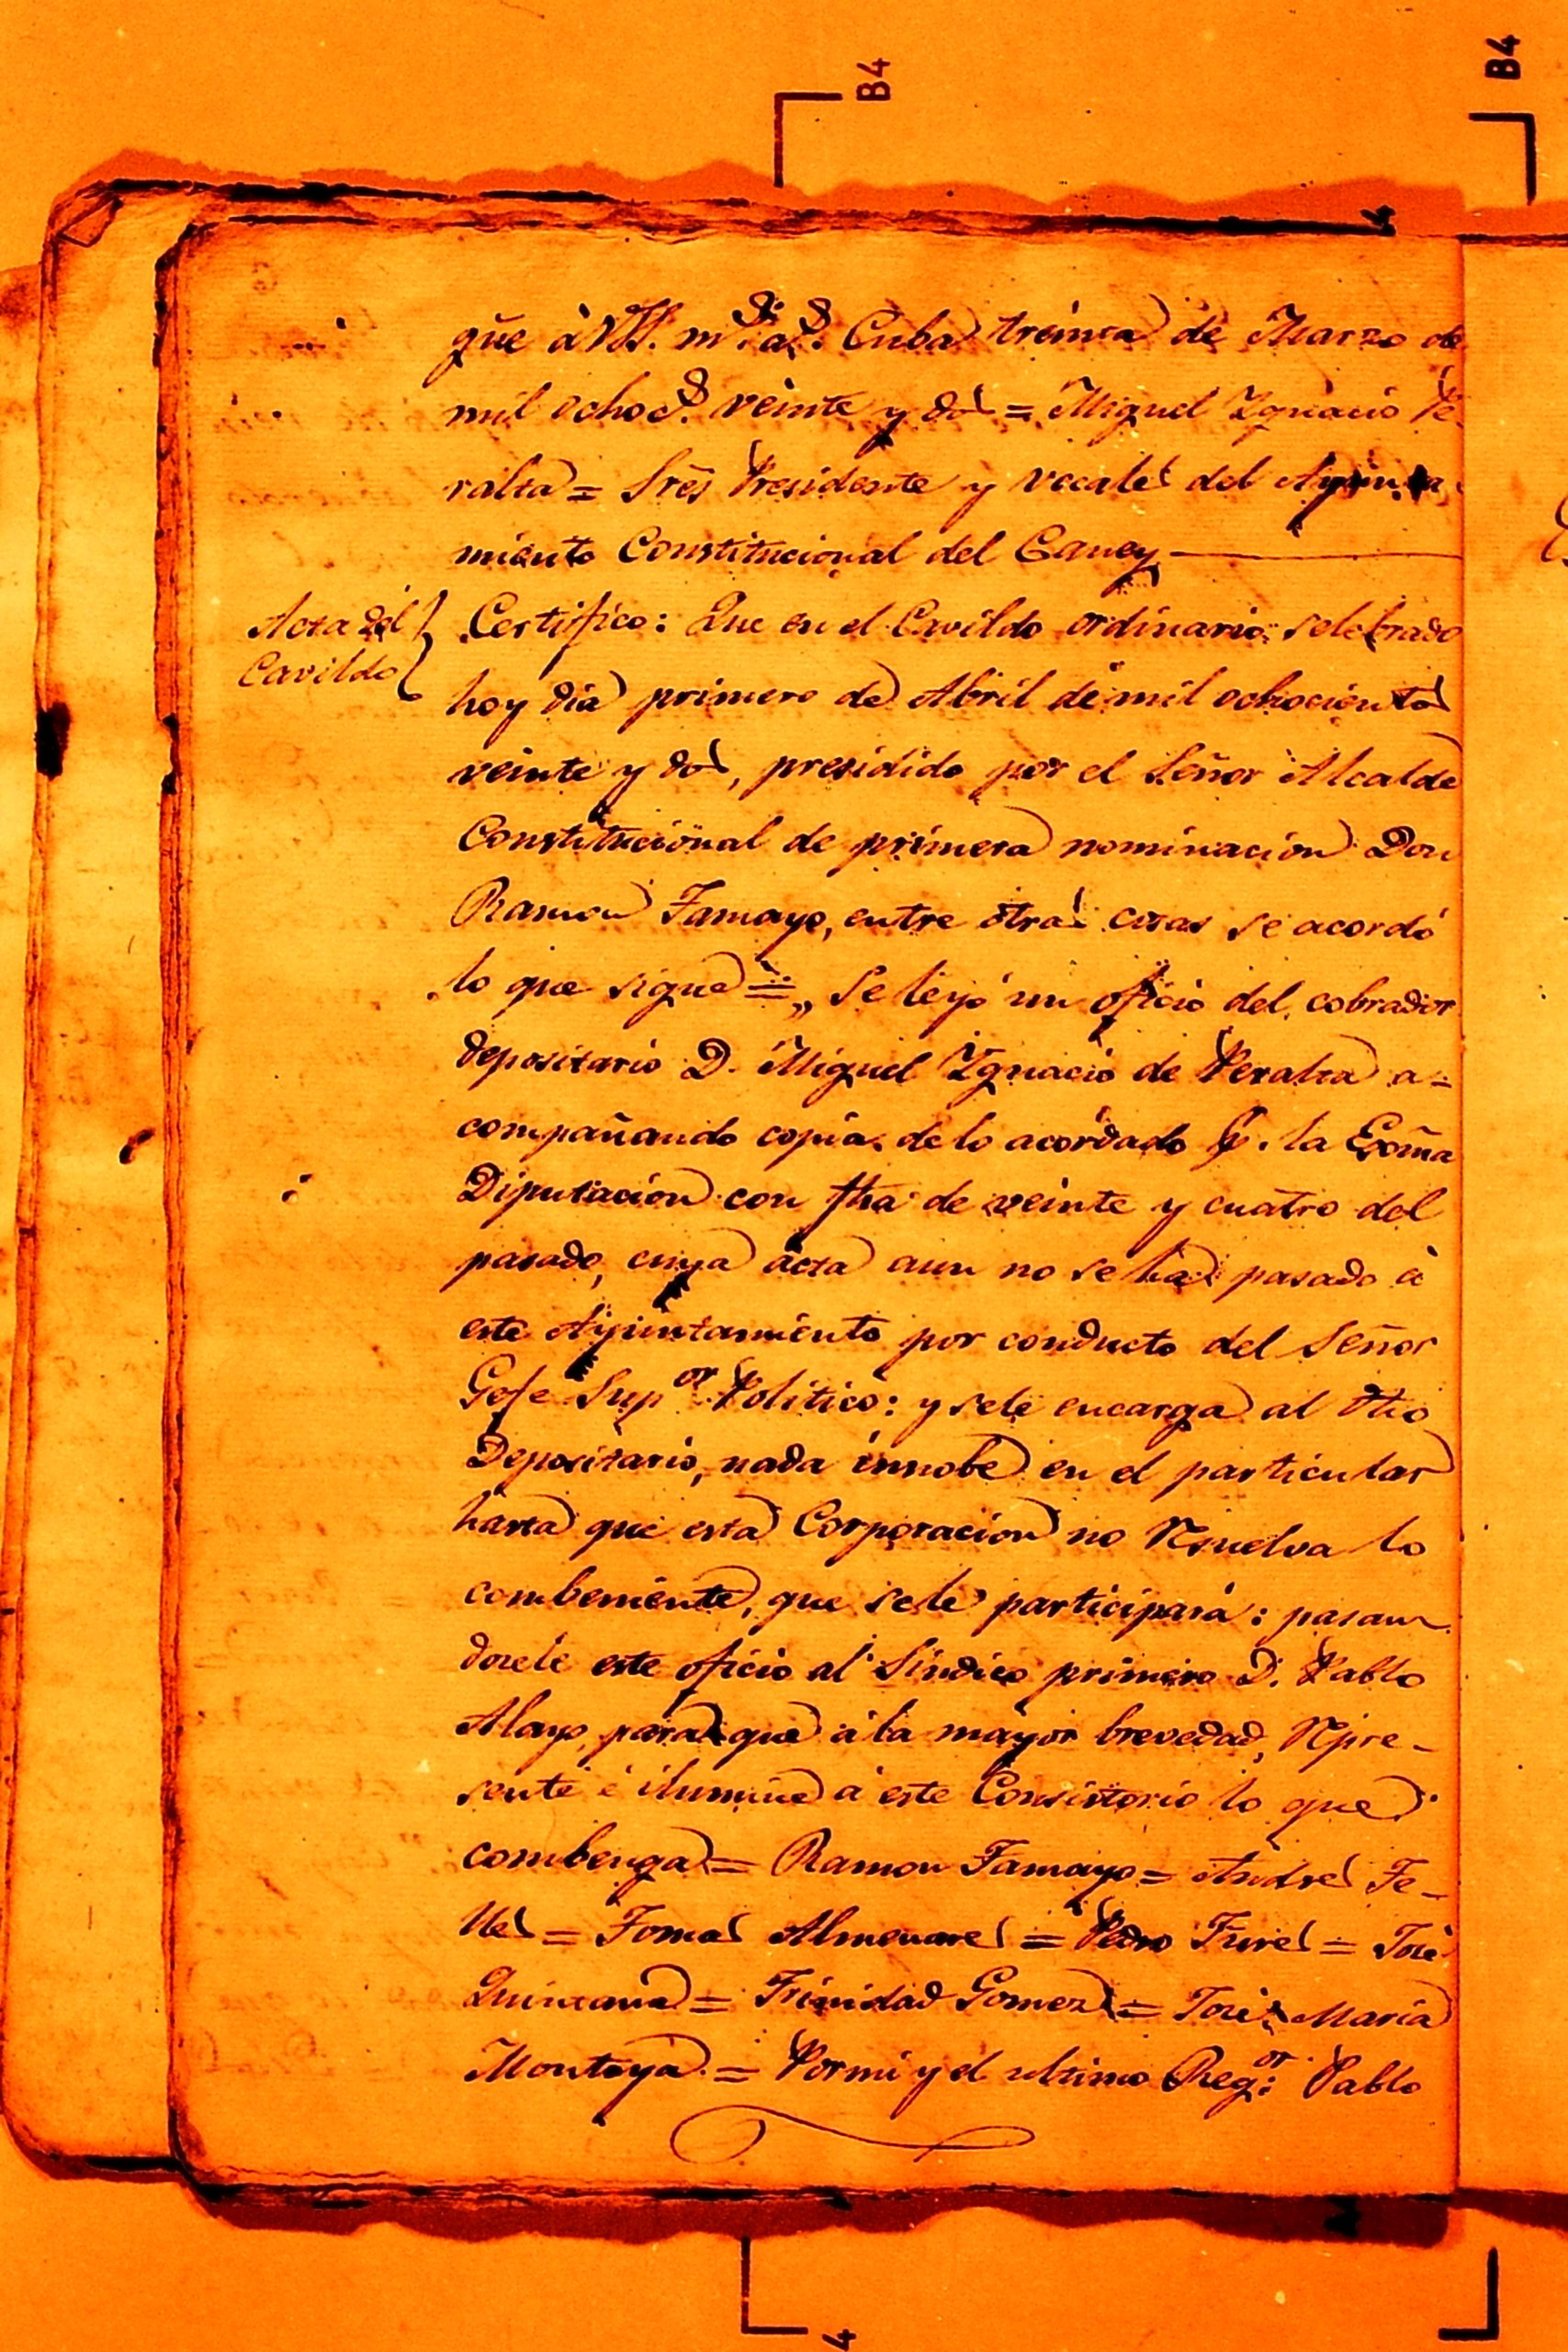 B4
B4
que à VSS. m.s a.s Cuba treinta de Marzo de
mil ochoc.s veinte y dos = Miguel Ygnacio Pe
ralta = Sres Presidente y vocales del Ayunta
miento Constitucional del Caney
Acta del
Cavildo
Certifico: Que en el Cavildo ordinario selebrado
hoy dia primero de Abril de mil ochocientos
veinte y dos, presidido por el Señor Alcalde
Constitucional de primera nominacion Don
Ramon Tamayo, entre otras cosas se acordó
lo que sigue = „ Se leyó un oficio del cobrador
depositario D. Miguel Ygnacio de Peralta a=
compañando copia de lo acordado p. la Exma
Diputacion con fha de veinte y cuatro del
pasado, cuya acta aun no se ha pasado à
este Ayuntamiento por conducto del Señor
Gefe Sup.or Politico: y sele encarga al dho
Depositario, nada innobe en el particular
hasta que esta Corporacion no Resuelva lo
combeniente, que sele participará: pasan
dosele este oficio al Sindico primero D. Pablo
Alayo, para que á la mayor brevedad, Repre-
sente é ilumine á este Consistorio lo que
combenga = Ramon Tamayo = Andres Te-
lles = Tomas Almenares = Pedro Tures = José
Quintana = Trinidad Gomez = José Maria
Montoya = Pormi y el ultimo Reg.or Pablo
4